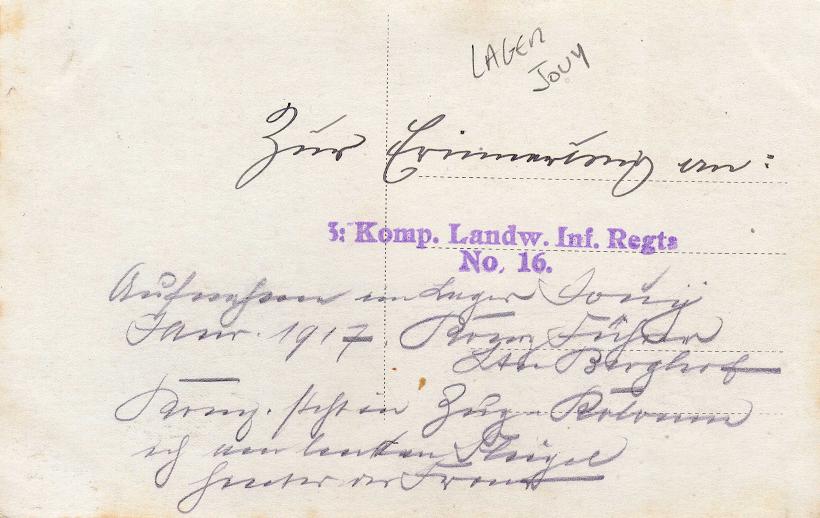 LAGER
JOUY
Zur Erinnerung an:
3: Komp. Landw. Inf. Regts
No. 16.
Aufnahme im Lager Jouy
Janr. 1917. Komp Führer
Ltn Berghof
Komp. steht in Zug-Kolonne
ich am linken Flügel
hinter der Front